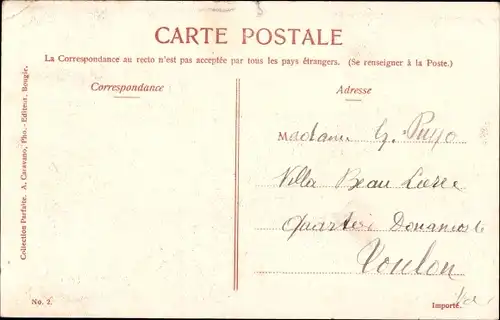 CARTE POSTALE
La Correspondance au recto n'est pas acceptée par tous les pays étrangers. (Se renseigner à la Poste.)
Correspondance
Adresse
Madame G. Puyo
Villa Beau
Quartier
Toulon
Var
Collection Parfaite. A. Caravano, Pho.-Editeur, Bougie.
No. 2.
Importé.